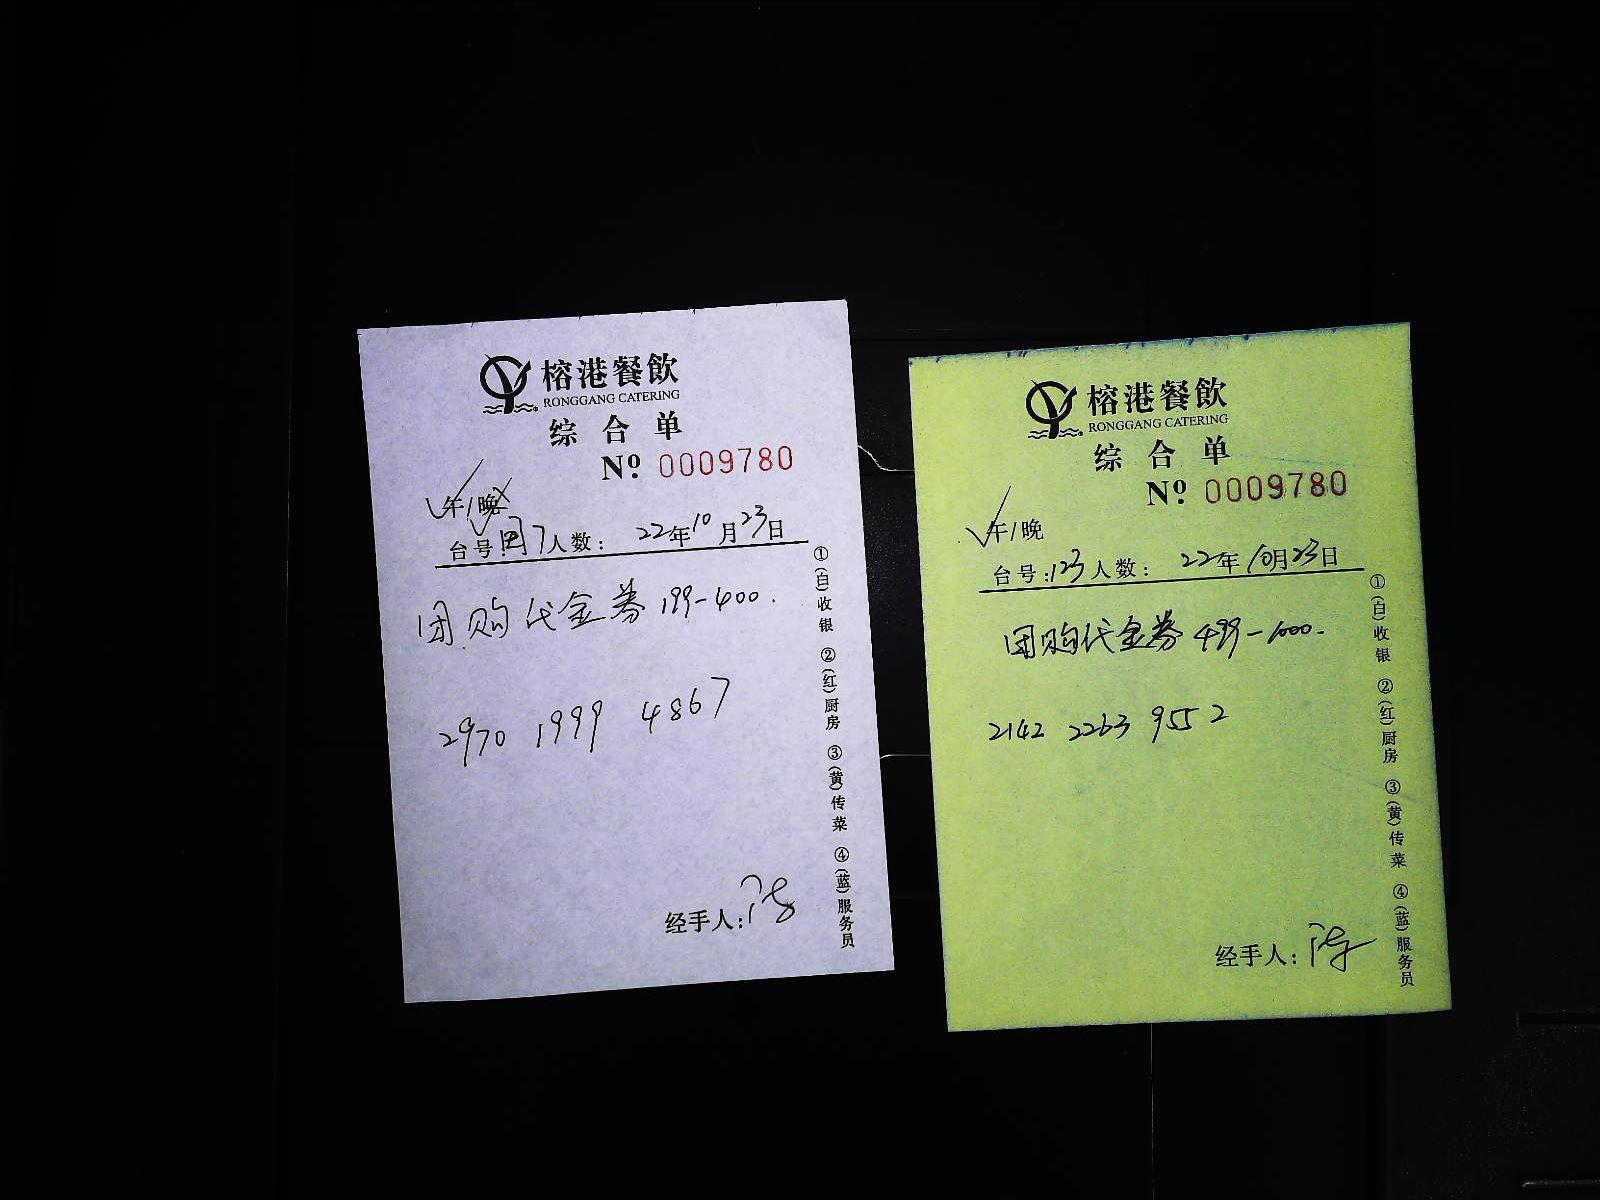 榕港餐飲
RONGGANG CATERING
综合单
Nº 0009780
午/晚
台号: 7人数: 22年10月23日
团购代金券199-400.
2970 1999 4867
经手人:
①(白)收银 ②(红)厨房 ③(黄)传菜 ④(蓝)服务员
榕港餐飲
RONGGANG CATERING
综合单
Nº 0009780
午/晚
台号:123人数: 22年10月23日
团购代金券499-1000.
2142 2263 9552
经手人:
①(白)收银 ②(红)厨房 ③(黄)传菜 ④(蓝)服务员